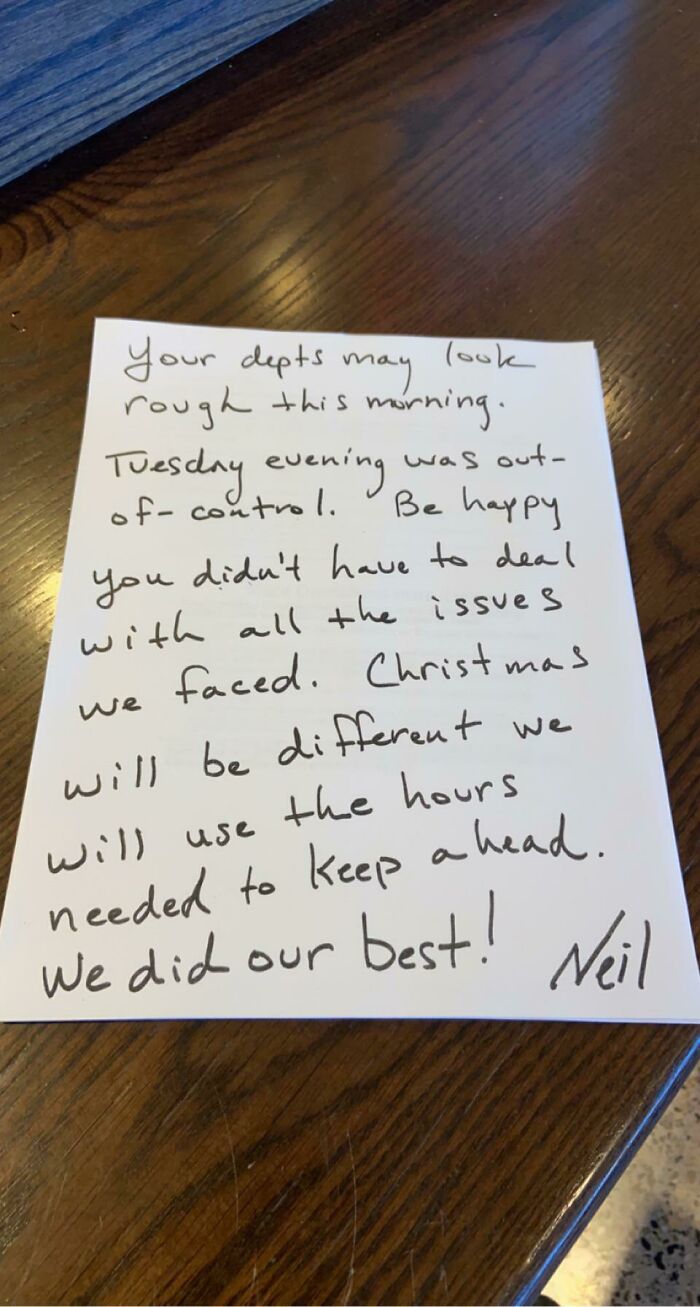 Your depts may look
rough this morning.
Tuesday evening was out-
of-control. Be happy
you didn't have to deal
with all the issues
we faced. Christmas
will be different we
will use the hours
needed to keep ahead.
We did our best! Neil